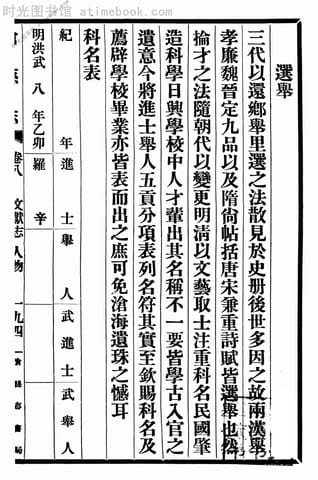 时光图书馆 atimebook.com
選舉
三代以還鄉舉里選之法散見於史册後世多因之故兩漢舉
孝廉魏晉定九品以及隋尙帖括唐宋兼重詩賦皆選舉也然
掄才之法隨朝代以變更明清以文藝取士注重科名民國肇
造科學日興學校中人才輩出其名稱不一要皆學古入官之
遺意今將進士舉人五貢分項表列名符其實至欽賜科名及
薦辟學校畢業亦皆表而出之庶可免滄海遺珠之憾耳
科名表
紀年 進士 舉人 武進士 武舉人
明洪武八年乙卯 羅辛
志 卷八 文獻志 人物 一九四